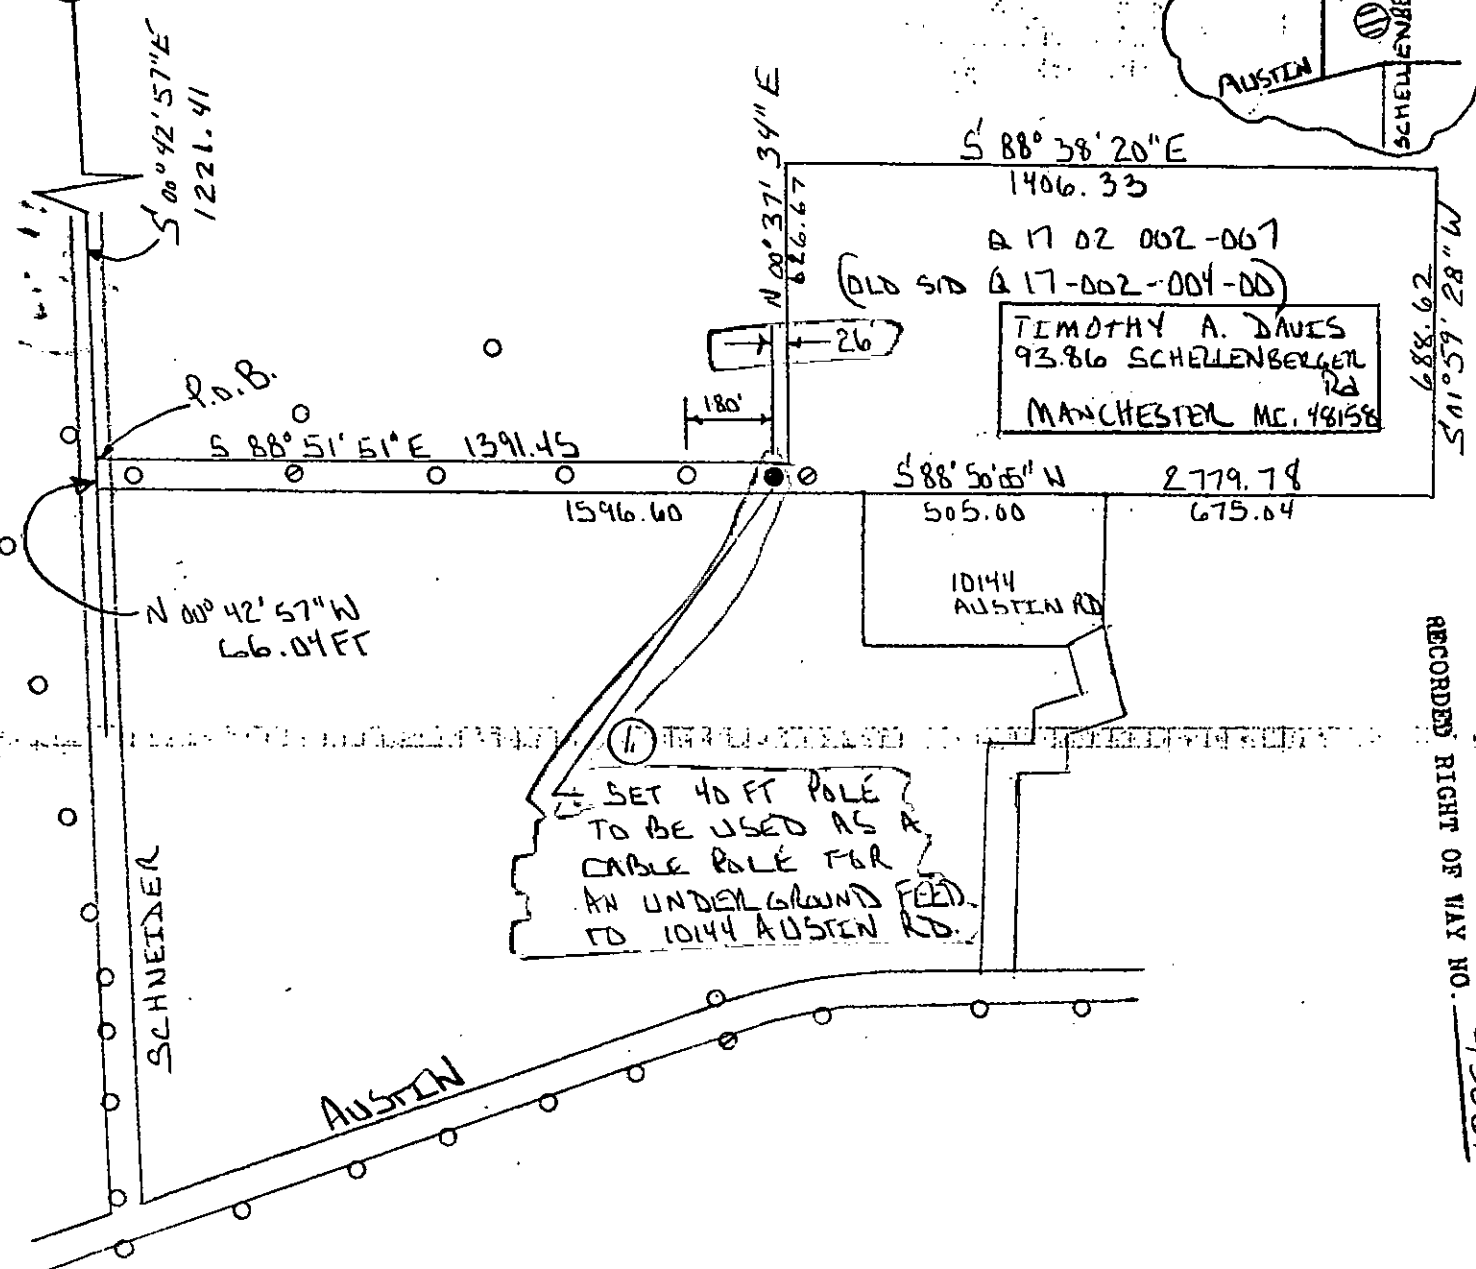 S 00° 42' 57" E
1221.41
N 00° 37' 34" E
626.67
AUSTIN
S 88° 38' 20" E
1406.33
Q 17 02 002-007
(OLD SID Q 17-002-004-00)
TIMOTHY A. DAVIS
93.86 SCHELLENBERGER
Rd
MANCHESTER MI. 48158
688.62
S 01° 59' 28" W
26'
P.O.B.
180'
S 88° 51' 51" E 1391.45
S 88° 50' 05" W 2779.78
1596.60
505.00
675.04
10144
AUSTIN RD
N 00° 42' 57" W
66.04 FT
1.
SET 40 FT POLE
TO BE USED AS A
CABLE POLE FOR
AN UNDERGROUND FEED
TO 10144 AUSTIN RD.
SCHNEIDER
AUSTIN
RECORDED RIGHT OF WAY NO.